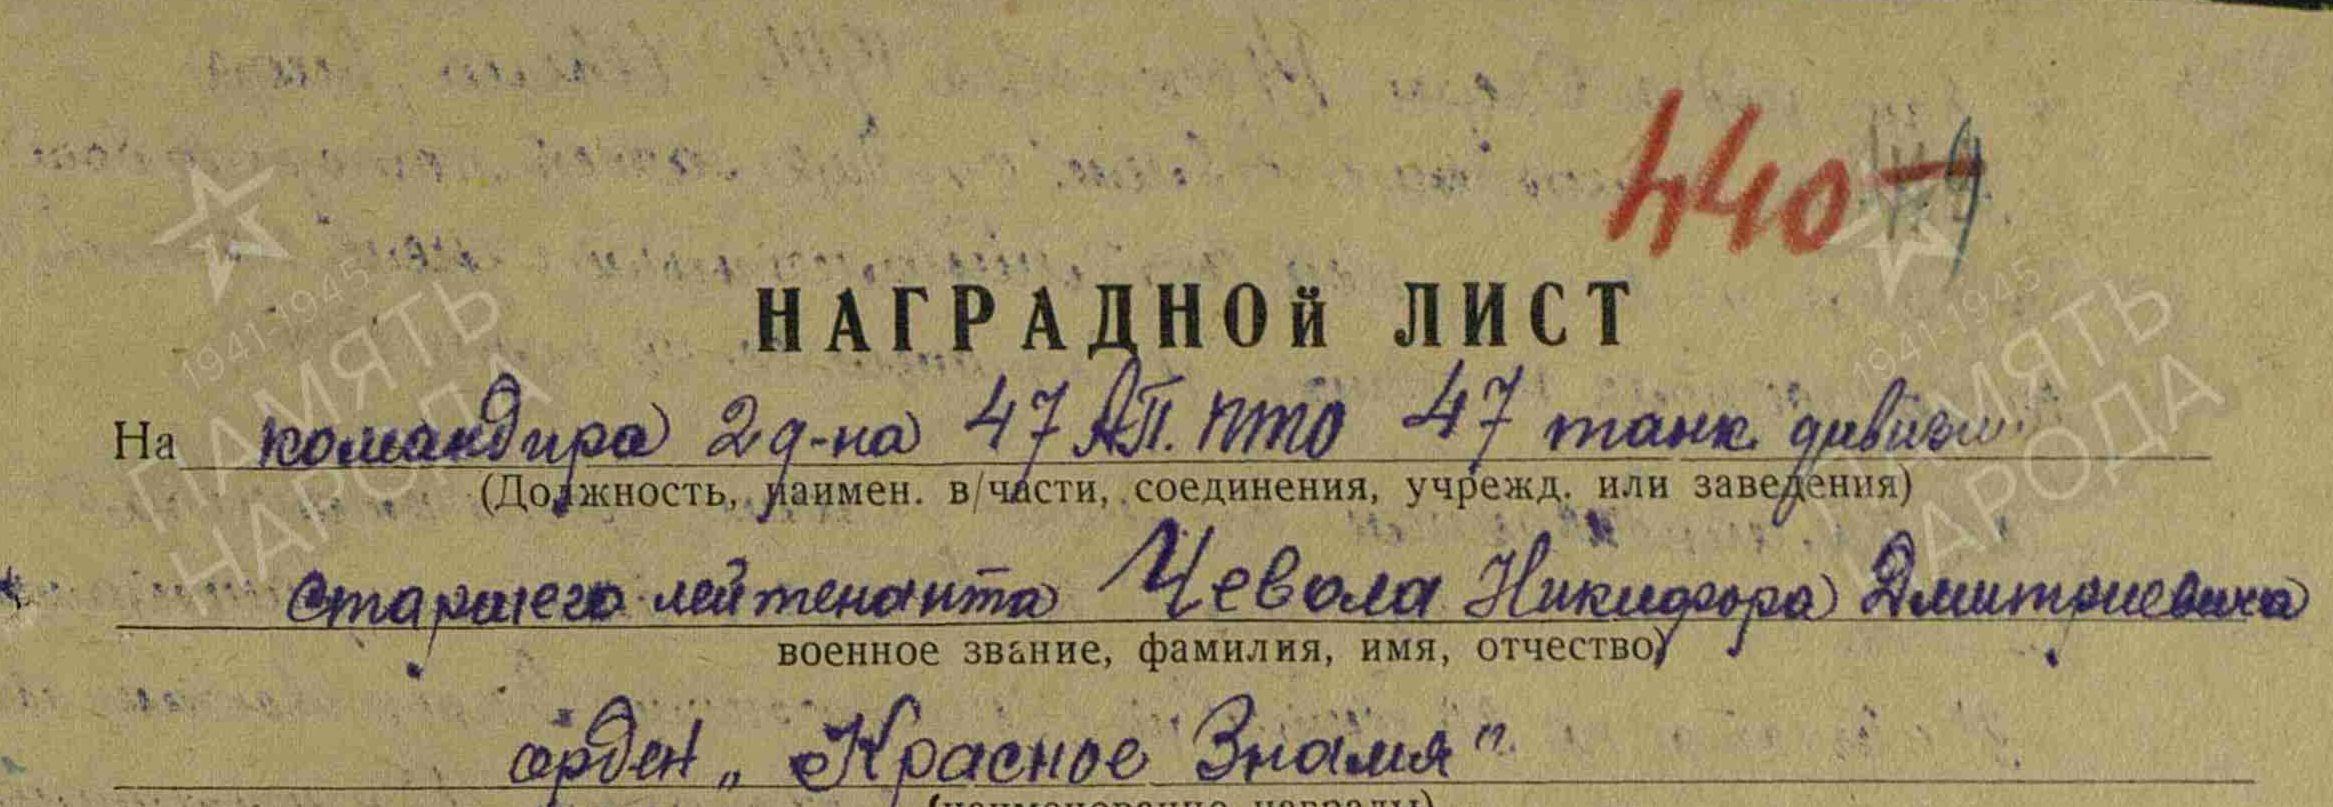 440
НАГРАДНОЙ ЛИСТ
На командира 2 д-на 47 АП. ПТО 47 танк. дивизии
(Должность, наимен. в/части, соединения, учрежд. или заведения)
старшего лейтенанта Чевола Никифора Дмитриевича
военное звание, фамилия, имя, отчество)
орден „Красное Знамя"
(наименование награды)
1941-1945
ПАМЯТЬ
НАРОДА
1941-1945
ПАМЯТЬ
НАРОДА